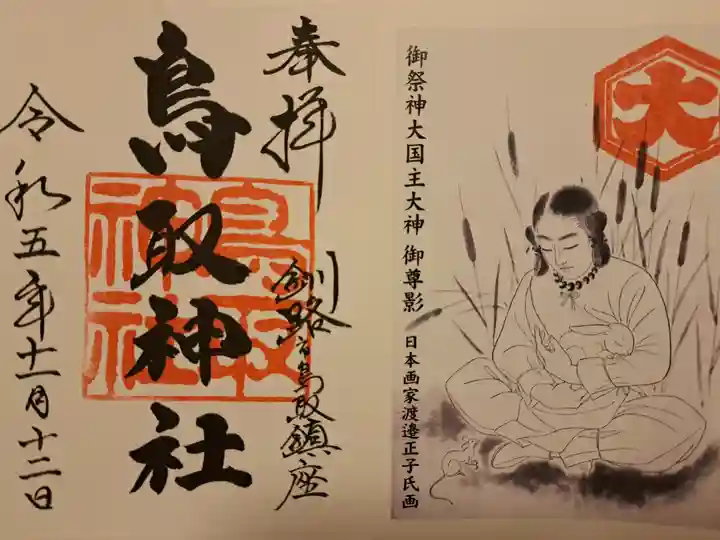 大
御祭神大国主大神 御尊影
日本画家渡邉正子氏画
奉拝
釧路市鳥取鎮座
鳥取神社
鳥取神社
令和五年十一月十二日